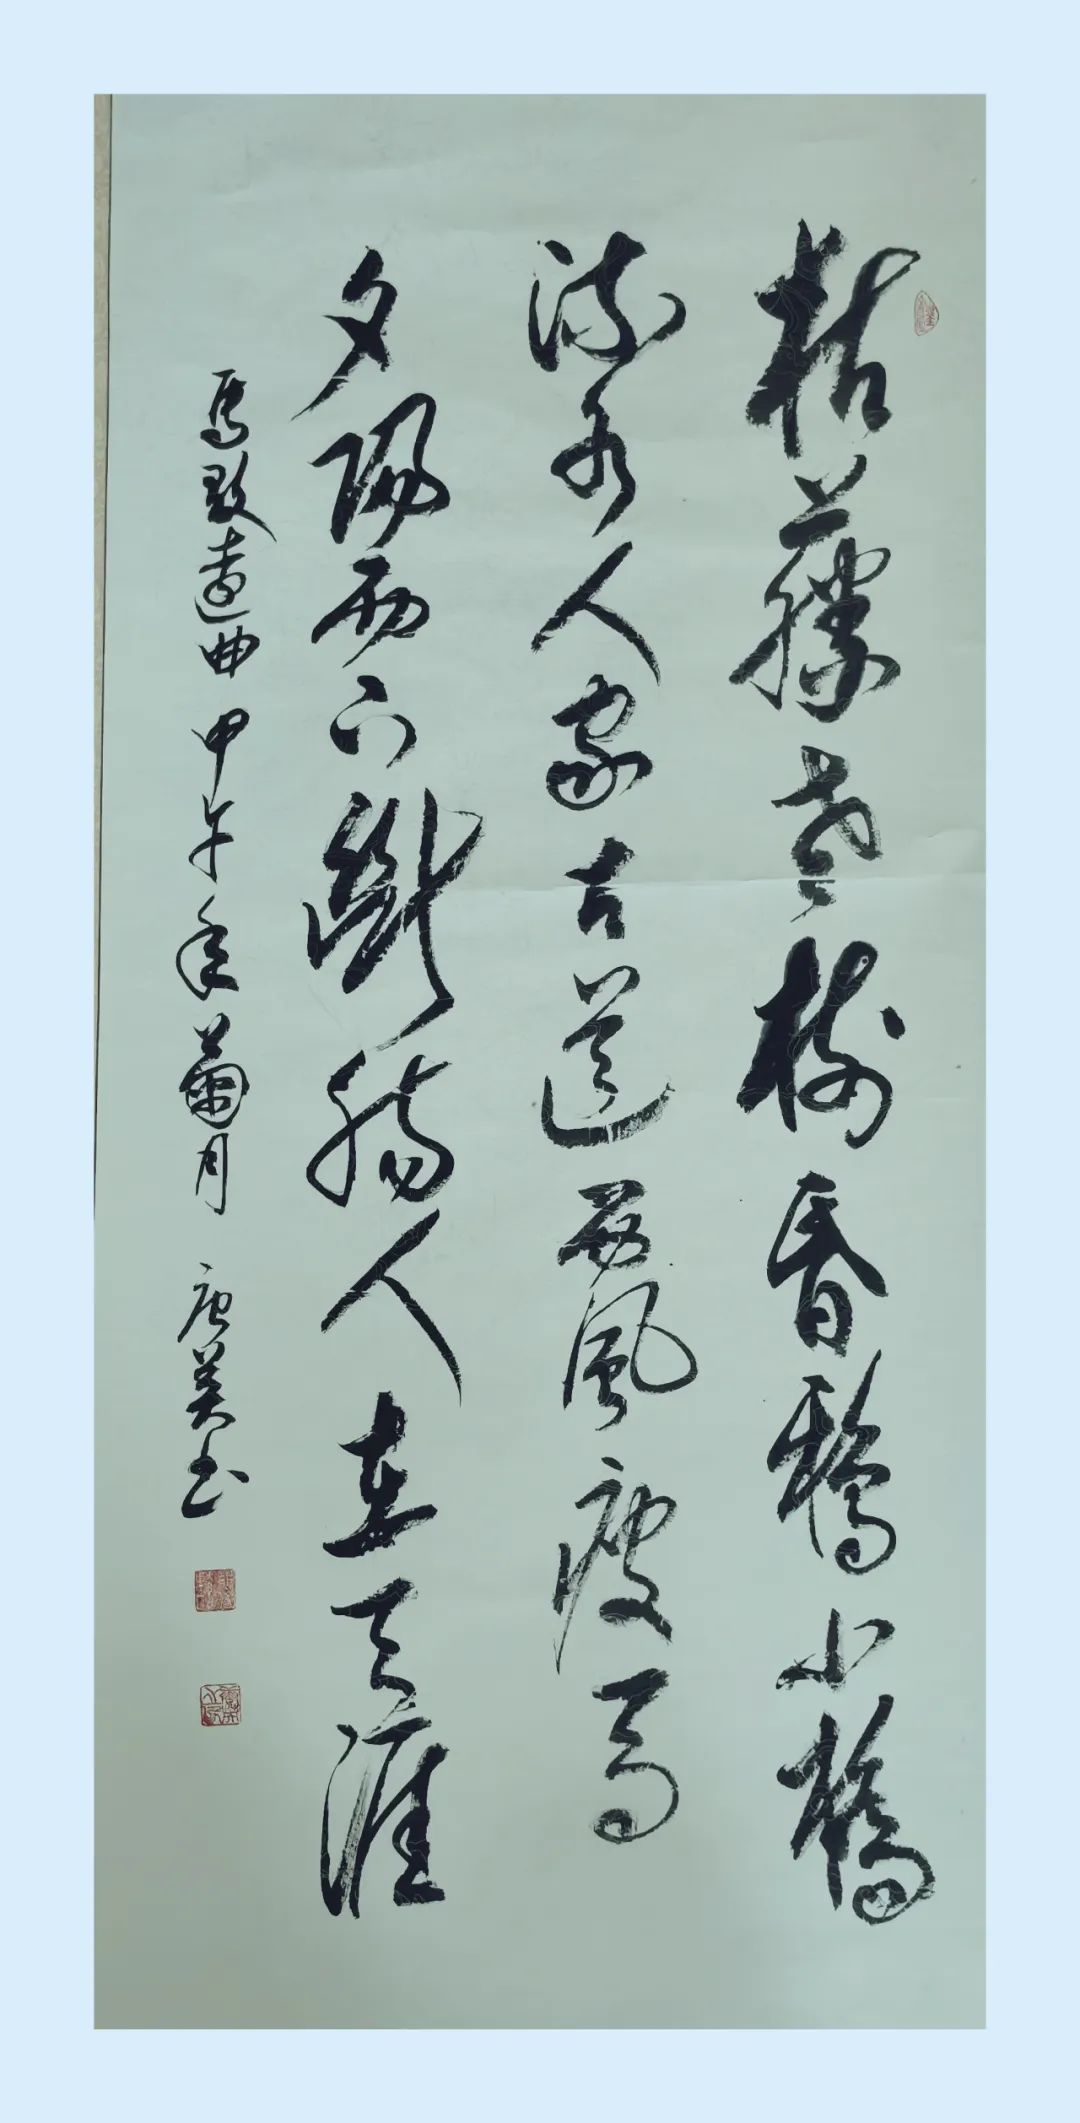 枯藤老樹昏鴉小橋
流水人家古道西風瘦馬
夕陽西下斷腸人在天涯
馬致遠曲 甲午年月 唐书